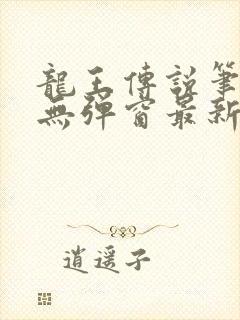 龍王傳說筆
無彈窗最新
逍遥子